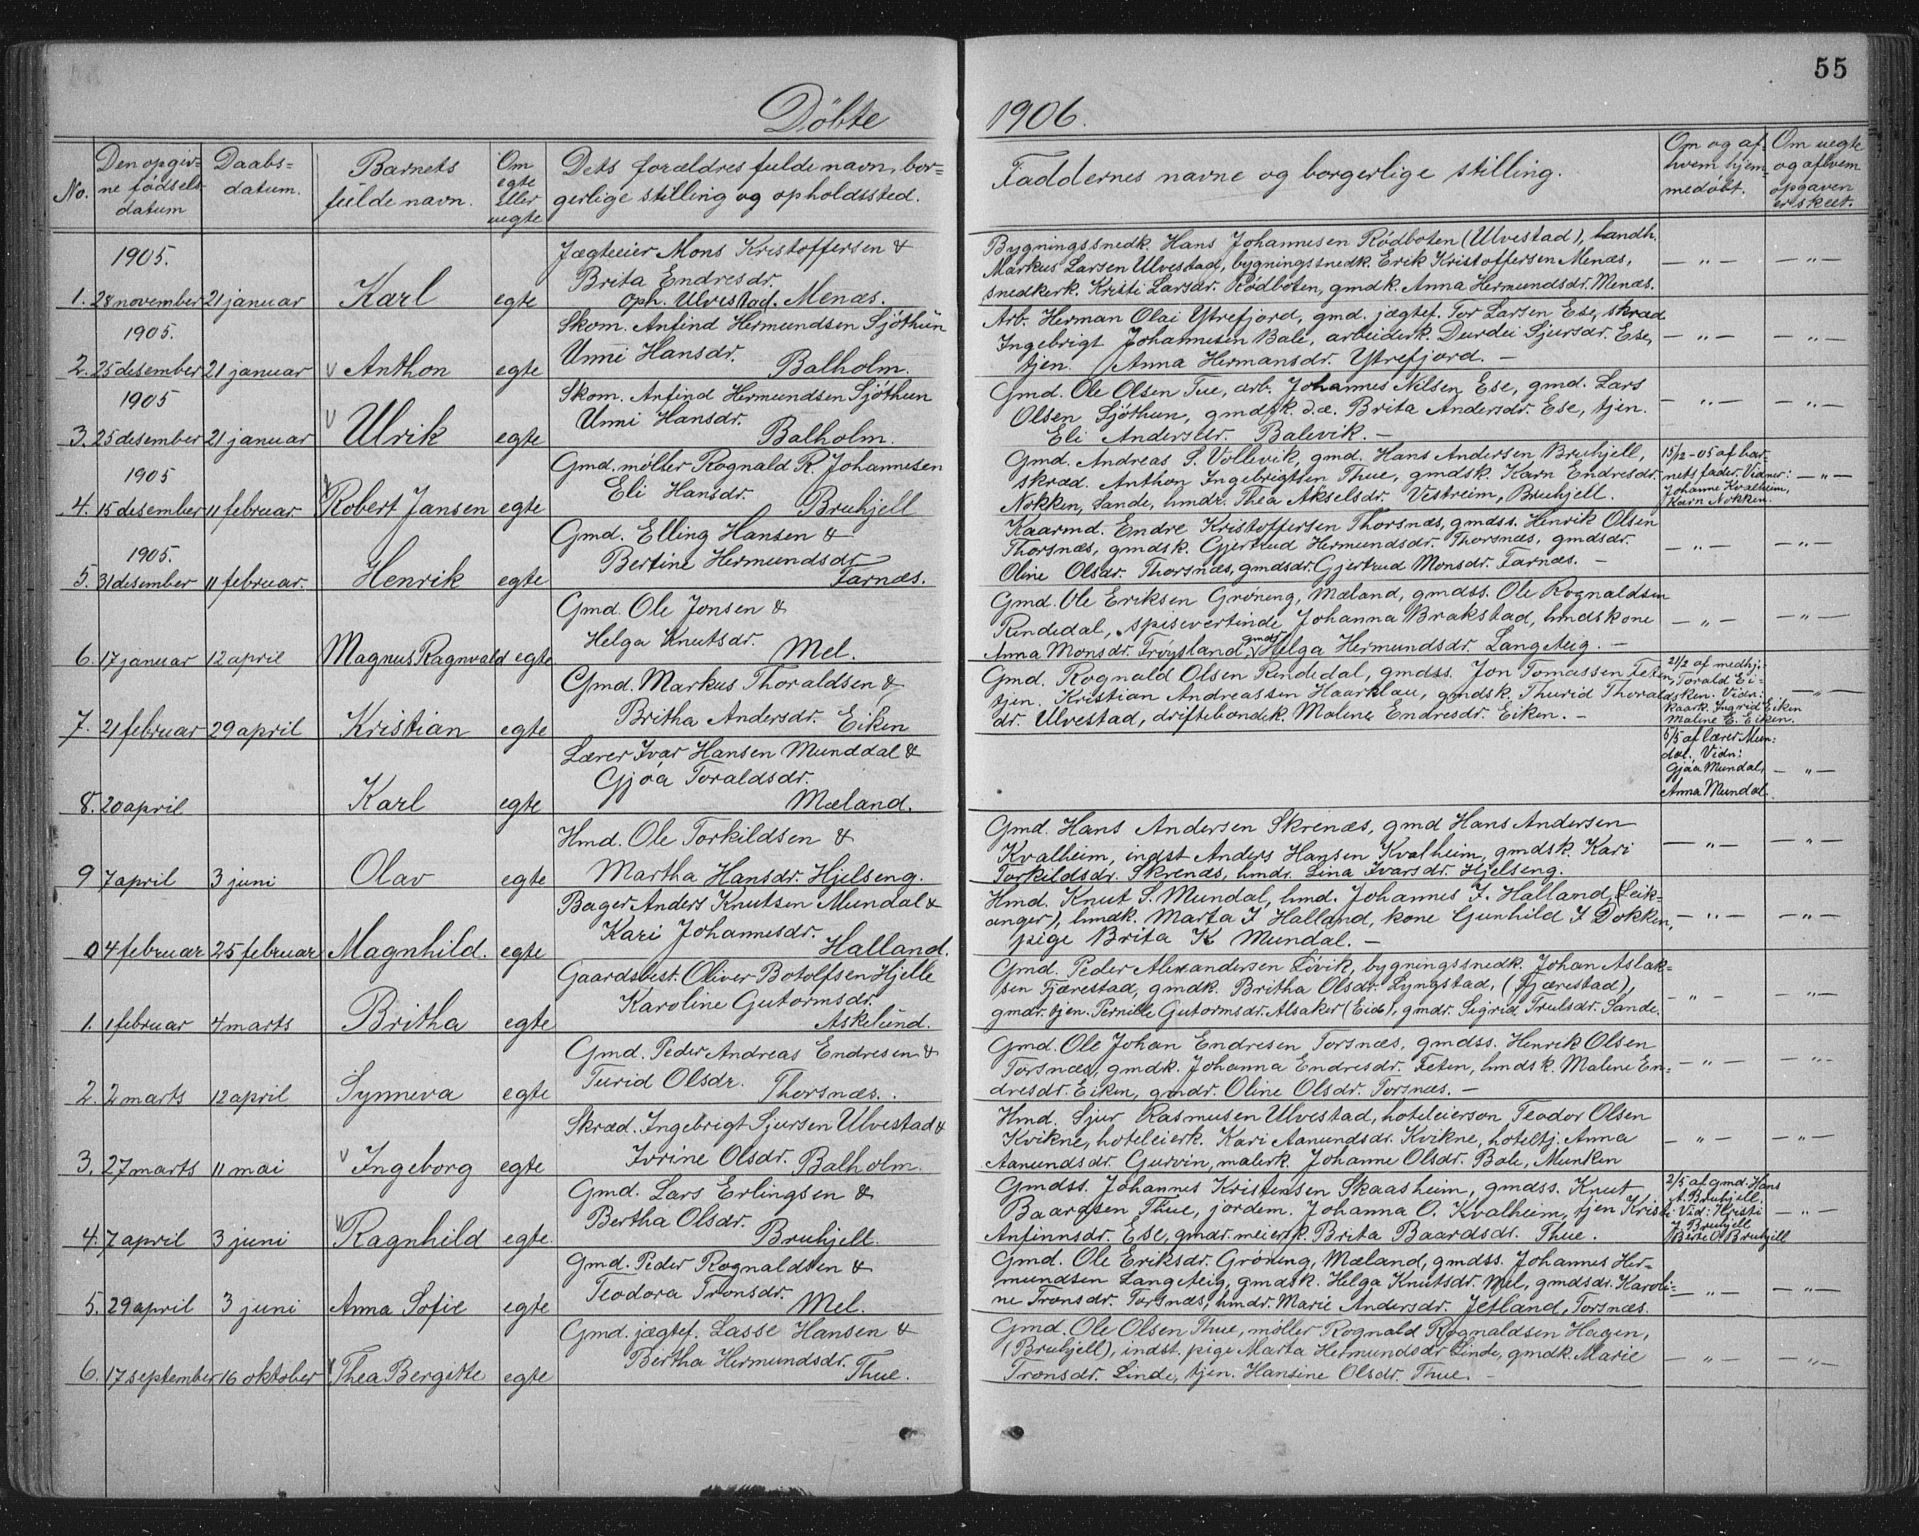 55
Döbte 1906.
No.
Den opgiv-
ne fødsels-
datum
Daabs-
datum.
Barnets
fulde navn.
Om
egte
eller
uegte
Dets forældres fulde navn, bor-
gerlige stilling og opholdssted.
Faddernes navne og borgerlige stilling.
Om og af
hvem hjem-
medøbt.
Om uegte
og af hvem
opgaven
er skeet.
1905.
1. 28 november 21 januar Karl egte
Jægteeier Mons Kristoffersen &
Brita Endresdr.
oph. Ulvestad. Menæs.
Bygningssnedk. Hans Johannesen Rödboten (Ulvestad), landh.
Markus Larsen Ulvestad, bygningssnedk. Erik Kristoffersen Menæs,
snedkerk. Kristi Larsdr. Rödboten, gmdk. Anna Hermundsdr. Menæs.
— „ — — „ —
1905.
2. 25 desember 21 januar v Anthon egte
Skom. Anfind Hermundsen Sjöthun
Unni Hansdr.
Balholm.
Arb. Herman Olai Ytrefjord, gmd. jægtef. Tor Larsen Ese, skræd.
Ingebrigt Johannesen Bale, arbeiderk. Durdei Sjursdr. Ese,
tjen. Anna Hermansdr. Ytrefjord. —
— „ — — „ —
1905
3. 25 desember 21 januar v Ulrik egte
Skom. Anfind Hermundsen Sjöthun
Unni Hansdr.
Balholm.
Gmd. Ole Olsen Tue, arb. Johannes Nilsen Ese, gmd. Lars
Olsen Sjöthun, gmdsk. d.æ. Brita Andersdr. Ese, tjen.
Eli Andersdr. Balevik. —
— „ — — „ —
1905
4. 15 desember 11 februar v Robert Jansen egte
Gmd. møller Rognald R. Johannesen
Eli Hansdr.
Bruhjell
Gmd. Andreas S. Vollevik, gmd. Hans Andersen Bruhjell,
skræd. Anthon Ingebrigtsen Thue, gmdsk. Karn Endresdr.
Nokken, Sande, hmdr. Thea Akselsdr. Vestreim, Bruhjell.
15/12-05 af bar-
nets fader. Vidner:
Johanne Kvalheim,
Karn Nokken.
— „ —
1905.
5. 31 desember 11 februar. Henrik egte
Gmd. Elling Hansen &
Bertine Hermundsdr
Farnæs.
Kaarmd. Endre Kristoffersen Thorsnæs, gmdss. Henrik Olsen
Thorsnæs, gmdsk. Gjertrud Hermundsdr. Thorsnæs, gmdsdr.
Oline Olsdr. Thorsnæs, gmdsdr. Gjertrud Monsdr. Farnæs. —
— „ — — „ —
6. 17 januar 12 april Magnus Ragnvald egte
Gmd. Ole Jonsen &
Helga Knutsdr.
Mel.
Gmd. Ole Eriksen Gröning, Mæland, gmdss. Ole Rognaldsen
Rendedal, spisevertinde Johanna Brakstad, hmdskone
Anna Monsdr. Fröysland, gmdr. Helga Hermundsdr. Langeteig. —
— „ — — „ —
7. 21 februar 29 april Kristian egte
Gmd. Markus Thoraldsen &
Britha Andersdr. Eiken
Gmd. Rognald Olsen Rendedal, gmdss. Jon Tomassen Feten,
tjen. Kristian Andreassen Haarklau, gmdsk. Thurid Thorald-
dr. Ulvestad, driftebondek. Malene Endresdr. Eiken. —
21/2 af medhj.
Torald Ei-
ken. Vidn:
kaark. Ingrid Eiken
Maline E. Eiken.
— „ —
8. 20 april Karl egte
Lærer Ivar Hansen Munddal &
Gjøa Toraldsdr.
Mæland.
5/5 af lærer Mun-
dal, Vidn:
Gjøa Mundal,
Anna Mundal.
— „ —
9 7 april 3 juni Olav egte
Hmd. Ole Torkildsen &
Martha Hansdr. Hjelseng.
Gmd. Hans Andersen Skrenæs, gmd Hans Andersen
Kvalheim, indst Anders Hansen Kvalheim, gmdsk. Kari
Torkildsdr. Skrenæs, hmdr. Lina Ivarsdr. Hjelseng.
— „ — — „ —
0 4 februar 25 februar Magnhild. egte
Bager Anders Knutsen Mundal &
Kari Johannesdr.
Halland.
Hmd. Knut S. Mundal, hmd. Johannes J. Halland, (Leik-
anger), hmdk. Marta J Halland, kone Gunhild J Dokken,
pige Brita K Mundal. —
— „ — — „ —
1. 1 februar 4 marts Britha egte
Gaardsbest. Oliver Botolfsen Hjelle
Karoline Gutormsdr.
Askelund.
Gmd. Peder Alexandersen Lövik, bygningssnedk. Johan Aslak-
sen Fjærestad, gmdk. Britha Olsdr. Lyngstad, (Fjærestad),
gmdr. tjen. Pernille Gutormsdr. Alsaker (Eide), gmdr. Sigrid Trulsdr. Sande.
— „ — — „ —
2. 2 marts 12 april Synneva egte
Gmd. Peder Andreas Endresen &
Turid Olsdr.
Thorsnæs.
Gmd. Ole Johan Endresen Torsnæs, gmdss. Henrik Olsen
Torsnæs, gmdk. Johanna Endresdr. Feten, hmdsk. Malene En-
dresdr. Eiken, gmdr. Oline Olsdr. Torsnæs. —
— „ — — „ —
3. 27 marts 11 mai v Ingeborg egte
Skræd. Ingebrigt Sjursen Ulvestad &
Ivrine Olsdr. Balholm.
Hmd. Sjur Rasmusen Ulvestad, hoteleierson Teodor Olsen
Kvikne, hoteleierk. Kari Aamundsdr. Kvikne, hoteltj. Anna
Aamundsdr. Gurvin, malerk. Johanne Olsdr. Bale, Munken
— „ — — „ —
4. 7 april 3 juni v Ragnhild egte
Gmd. Lars Erlingsen &
Bertha Olsdr.
Bruhjell.
Gmdss. Johannes Kristensen Skaasheim, gmdss. Knut
Baardsen Thue, jordem. Johanna O. Kvalheim, tjen Kristi
Anfinnsdr. Ese, gmdr. meierk. Brita Baardsdr. Thue.
2/5 af gmd. Hans
A. Bruhjell.
Vid: Kristi
J. Bruhjell
Berte O Bruhjell
— „ —
5. 29 april 3 juni Anna Sofie egte
Gmd. Peder Rognaldsen &
Teodora Tronsdr.
Mel.
Gmd. Ole Eriksdr. Gröning, Mæland, gmdss. Johannes Her-
mundsen Langeteig, gmdsk. Helga Knutsdr. Mel, gmdsdr. Karoli-
ne Tronsdr. Torsnæs, hmdr. Marie Andersdr. Jetland, Torsnæs.
— „ — — „ —
6. 17 september 16 oktober Thea Bergitte egte
Gmd. jægtef. Lasse Hansen &
Bertha Hermundsdr.
Thue.
Gmd. Ole Olsen Thue, møller Rognald Rognaldsen Hagen,
(Bruhjell), indst. pige Marta Hermundsdr Linde, gmdk. Marie
Tronsdr. Linde, tjen. Hansine Olsdr. Thue. —
— „ — — „ —